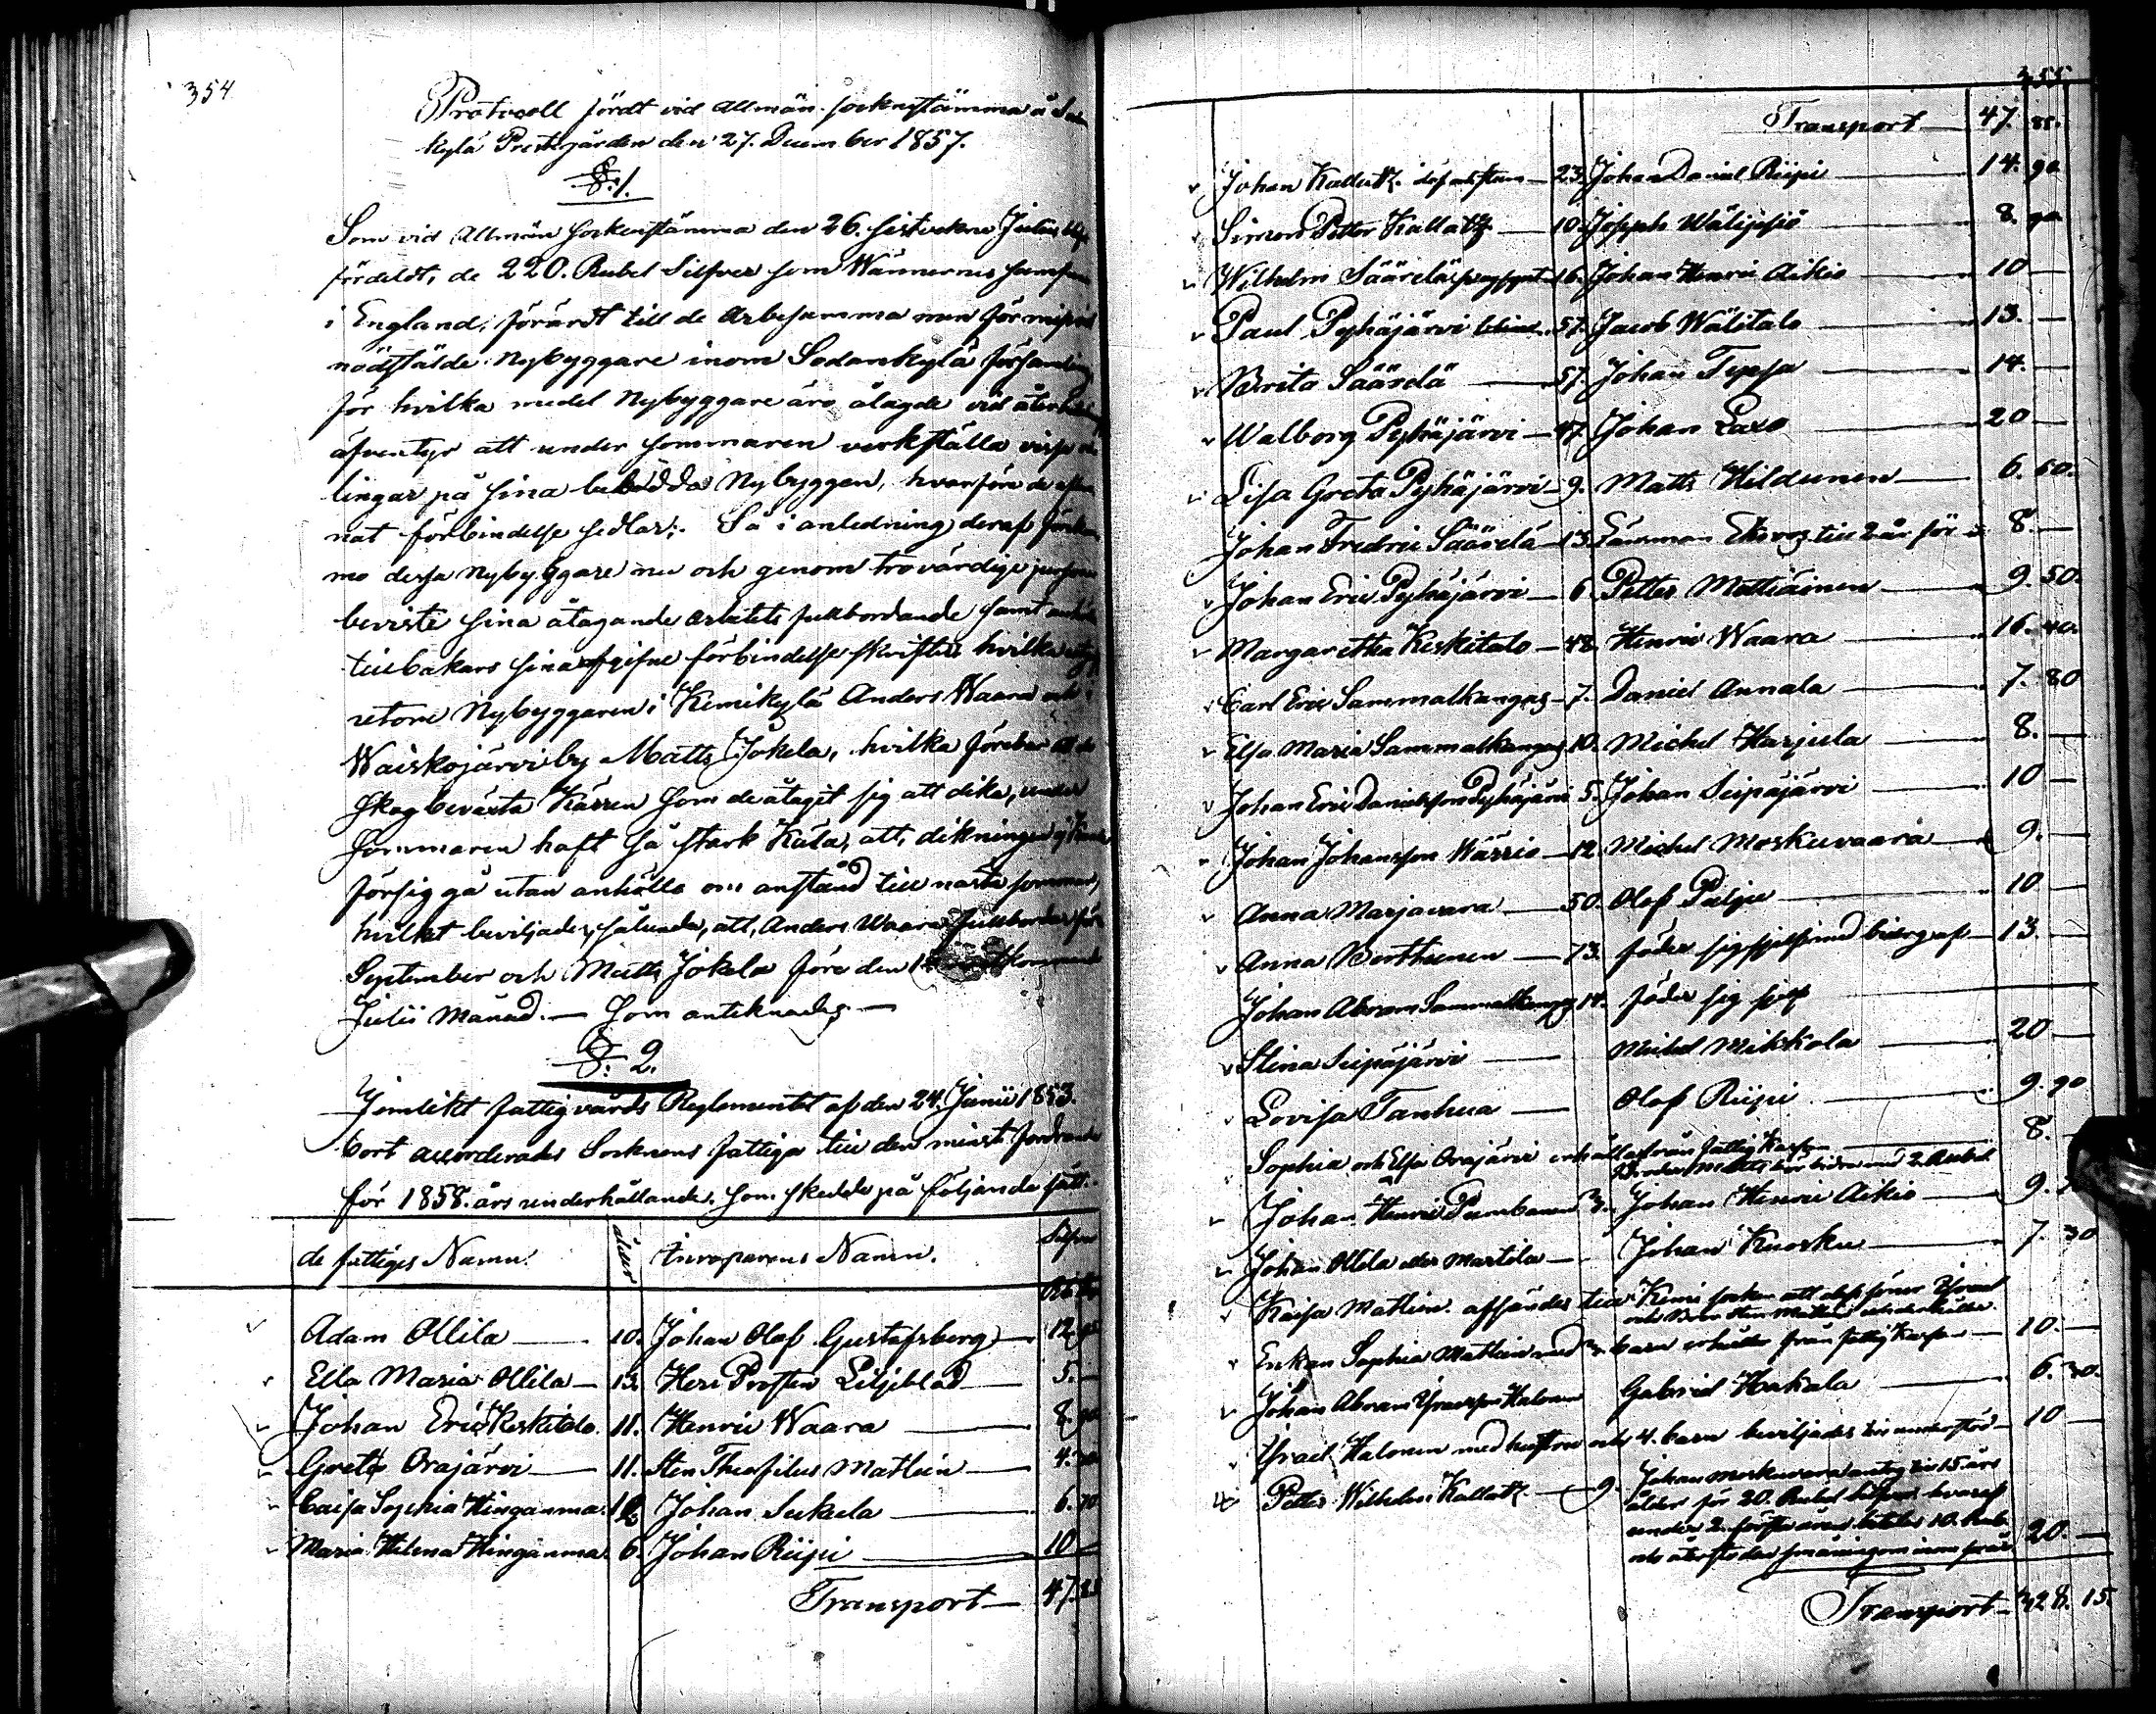 354
Protocoll fördt vid Allmän sockenstämma å Sodan
kylä Prestgården den 27. December 1857.
§. 1.
Som vid Allmän sockenstämma den 26. sistvekne Julii
fördeldt, de 220. Rubel Silfver som Wännernes samfund
i England, förärdt till de Arbesamma men för
nödstälde Nybyggare inom Sodankylä församling
för hvilka medel Nybyggare äro ålagde vid
äfventyr att under sommaren verkställa vissa
lingar på sina bebodda Nybyggen, hvarföre de
nat förbindelse sedlar; Så i anledning deraf
mo dessa Nybyggare nu och genom trovärdige personer
beviste sina åtagande arbetets fullbordande samt
tillbakars sina gifne förbindelse skrifter hvilka
retoure Nybyggaren i Kemikylä Anders Waara och i
Waiskojärvi by Matts Jokela, hvilka förebar att de
skogbeväxta Kärren som de åtagit sig att dika, under
sommaren haft så stark Käla, att, dikningen ej kunde
försiggå utan anhölle om anstånd till nästa sommar,
hvilket beviljades, sålunda, att, Anders Waara fullbordar före
September och Matts Jokela före den
Julii Månad. — Som antecknades. —
§. 2.
Jemlikt fattigvårds Reglementet af den 24. Junii 1853.
bort accorderades Socknens fattiga till den minst fordrande
för 1858. års underhållande. som skedde på följande sätt.
de fattiges Namn. ålder Inroparens Namn. Silfver
Adam Ollila — 10. Johan Olof Gustafsberg — 12
Ella Maria Ollila — 13. Herr Prosten Liljeblad — 5. —
Johan Eric Keskitalo. 11. Henric Waara — 8. 90
Greta Orajärvi — 11. Sten Theofilus Matlein — 4.
Caisa Sophia Hinganmaa. 12 Johan Sukula — 6. 70
Maria Helena Hinganmaa. 6. Johan Riipi — 10 —
Transport — 47. 85
355
Transport — 47. 85.
Johan Kallatz. — 23. Johan Daniel Riipi — 14. 90
Simon Petter Kallatz — 10. Joseph Wälipesiö — 8. 90
Wilhelm Säärelä 16. Johan Henric Aikio — 10 —
Paul Pyhäjärvi blind. 57. Jacob Wälitalo — 13. —
Brita Säärelä — 57. Johan Teppa — 14. —
Walborg Pyhäjärvi — 47. Johan Laxo — 20 —
Lisa Greta Pyhäjärvi — 9. Matts Hildunen — 6. 60.
Johan Fredric Säärelä — 13. Länsman Ekroos till 2 år för — 8. —
Johan Eric Pyhäjärvi — 6. Petter Mattiainen — 9. 50.
Margaretha Keskitalo — 48. Henric Waara — 16. 40.
Carl Eric Sammalkangas — 7. Daniel Annala — 7. 80
Elsa Maria Sammalkangas 10. Michel Harjula — 8. —
Johan Eric Danielsson Pyhäjärvi 5. Johan Seipäjärvi — 10 —
Johan Johansson Wärrio — 12. Michel Moskuvaara — 9. —
Anna Marjavara — 50. Olof Pulju — 10 —
Anna Korthunen — 73. föder sig sjelf med bidrag af — 13. —
Johan Abram Sammalkangas 14. föder sig sjelf
Stina Seipäjärvi — Michel Mikkola — 20 —
Lovisa Tanhua — Olof Riipi — 9. 90
Sophia och Elsa Orajärvi erhålla från fattig Kassan — 8. —
Brodren Matts bör bidra med 2. Rubel
Johan Henric Pumbanen 3. Johan Henric Aikio — 9.
Johan Ollila eller Martila — Johan Kuosku — 7. 30
Kaisa Matlein. affändes till Kemi socken att dess söner Ysrael
och Sten Matlein underhålla.
Enkan Sophia Matlein med 3. barn erhåller från fattig Kassan — 10. —
Johan Abram Ysraelsson Halonen Gabriel Hakala — 6. 30.
Ysrael Halonen med hustru och 4. barn beviljades till understöd — 10 —
Petter Wilhelm Kallatz — 9. Johan Moskuvara antog till 15. års
ålder för 20. Rubel Silfver hvaraf
under 2. första åren betalas 10. Rub.
och återstoden
20. —
Transport — 328. 15.